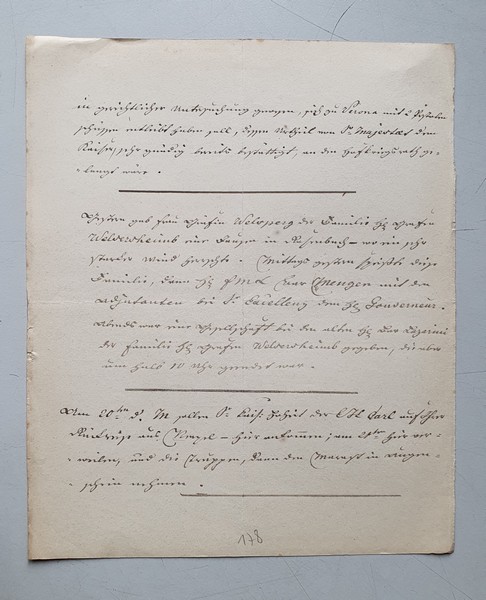 in gerichtlicher Untersuchung gewesen, sich zu Verona mit 2 Pistolen
schüssen entleibt haben soll, dessen Urtheil von Sr Majestaet dem
Kaiser, sehr gnädig bereits bestättiget, an den Hofkriegsrath ge-
- langt wäre.
Gestern gab Frau Gräfin Welsperg der Familie Gräfin
Weldersheimb eine Jause in – wo ein sehr
starker Wind herrschte. Mittags gestern speißte diese
Familie, dann H FML Mengen mit den
Adjutanten bei Sr Excellenz dem H Gouverneur.
Abends war eine Gesellschaft bei den alten
der Familie H Grafen Weldersheimb gegeben, die aber
um halb 10 Uhr geendet war.
Am 20ten d. M sollen Sr Kais: Hoheit der EH Carl auf Ihrer
Rückreise aus – hier ankommen, am 21ten hier ver-
- weilen, und die Truppen, dann den in Augen-
- schein nehmen.
178